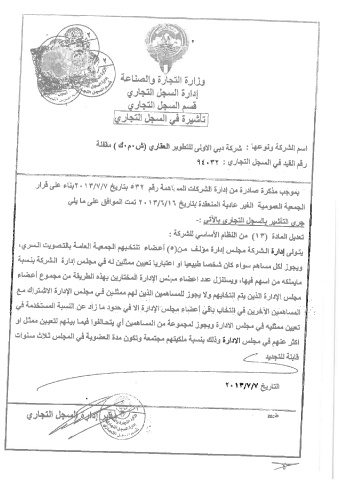 وزارة التجارة والصناعة
إدارة السجل التجاري
قسم السجل التجاري
تأشيرة في السجل التجاري
اسم الشركة ونوعها : شركة دبي الاولى للتطوير العقاري (ش.م.ك) مقفلة
رقم القيد في السجل التجاري : ٩٤٠٣٢
بموجب مذكرة صادرة من إدارة الشركات المساهمة رقم ٥٣٢ بتاريخ ٢٠١٣/٧/٧ بناء على قرار
الجمعية العمومية الغير عادية المنعقدة بتاريخ ٢٠١٣/٦/١٦ تمت الموافق على ما يلي
جرى التأشير بالسجل التجاري بالآتي :
تعديل المادة (١٣) من النظام الأساسي للشركة :
يتولى إدارة الشركة مجلس إدارة مؤلف من(٥) أعضاء تنتخبهم الجمعية العامة بالتصويت السري،
ويجوز لكل مساهم سواء كان شخصا طبيعيا او اعتباريا تعيين ممثلين له في مجلس إدارة الشركة بنسبة
مايملكه من اسهم فيها، ويستنزل عدد اعضاء مجلس الإدارة المختارين بهذه الطريقة من مجموع أعضاء
مجلس الإدارة الذين يتم إنتخابهم ولا يجوز للمساهمين الذين لهم ممثلين في مجلس الإدارة الاشتراك مع
المساهمين الآخرين في انتخاب باقي أعضاء مجلس الإدارة الا في حدود ما زاد عن النسبة المستخدمة في
تعيين ممثليه في مجلس الادارة ويجوز لمجموعة من المساهمين أن يتحالفوا فيما بينهم لتعيين ممثل او
اكثر عنهم في مجلس الادارة وذلك بنسبة ملكيتهم مجتمعة وتكون مدة العضوية في المجلس ثلاث سنوات
قابلة للتجديد
التاريخ ٢٠١٣/٧/٧
مدير إدارة السجل التجاري